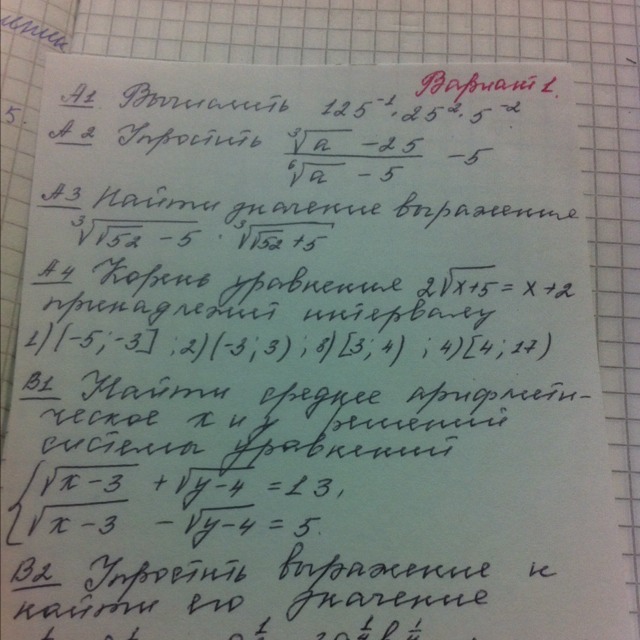 Вариант 1.
А1 Вычислить 125⁻¹·25²·5⁻²
А2 Упростить (∛a − 25)/(⁶√a − 5) − 5
А3 Найти значение выражения
∛(√152 − 5) · ∛(√152 + 5)
А4 Корень уравнения 2√(x+5) = x+2
принадлежит интервалу
1) (-5; -3] ; 2) (-3; 3) ; 3) [3; 4) ; 4) [4; 17)
В1 Найти среднее арифмети-
ческое x и y решений
системы уравнений
√(x−3) + √(y−4) = 13,
√(x−3) − √(y−4) = 5.
В2 Упростить выражение и
найти его значение